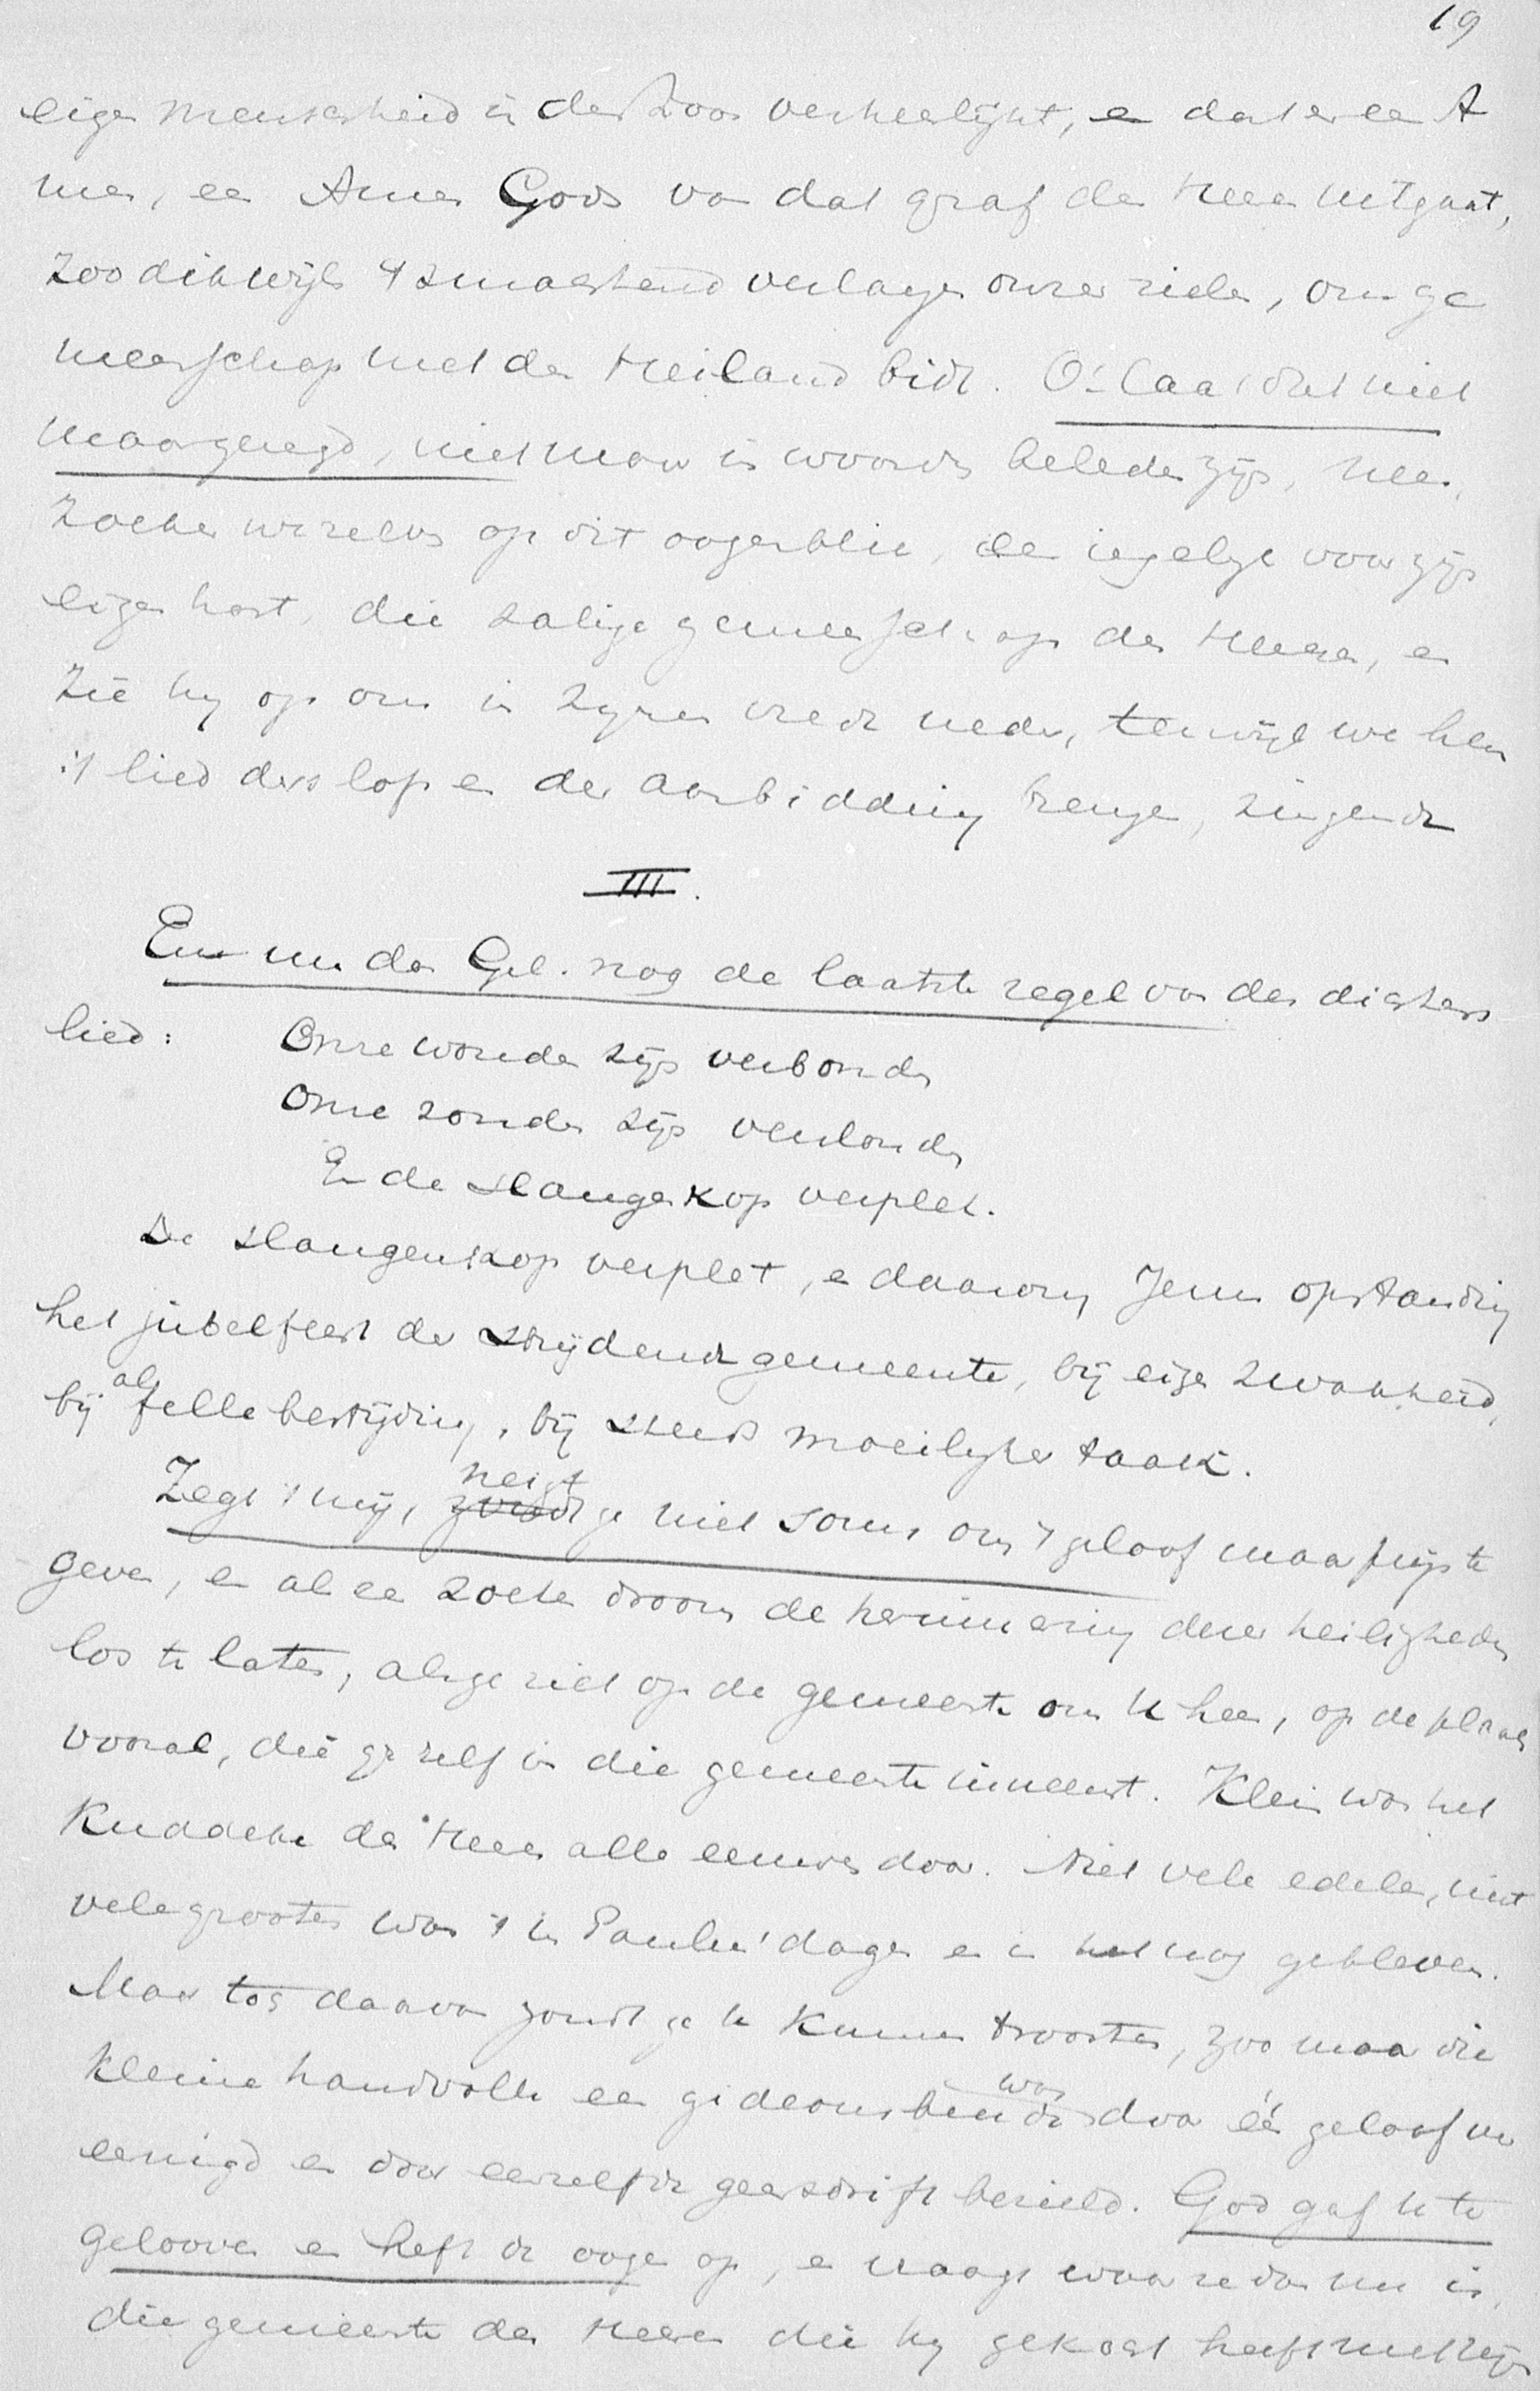 19
eigen menschheid in den Zoon verheerlijkt, en dat er een A
men, een Amen Gods van dat graf des Heeren uitgaat,
zoo dikwijls 't smachtend verlangen onzer zielen, om ge
meenschap met den Heiland bidt. O! laat dat niet
maar gezegd, niet maar in woorden beleden zijn, neen,
zoeken we zelvs op dit oogenblik, een iegelijk voor zijn
eigen hart, die zalige gemeenschap des Heeren, en
zie hij op ons in zijnen vrede neder, terwijl we hem
't lied des lofs en der aanbidding brengen, zingende
III.
En nu dan Gel. nog de laatste regel van des dichters
lied: Onze wonden zijn verbonden
Onze zonden zijn verslonden
En de slangenkop verplet.
De slangenkop verplet, en daarom Jezus opstanding
het jubelfeest der strijdende gemeente, bij eigen zwakheid,
bij al felle bestrijding, bij steeds moeilijker taak.
Zegt 't mij, neigt ge niet soms om 't geloof maar prijs te
geven, en als een zoeten droom de herinnering dezer heiligheden
los te laten, als ge ziet op de gemeente om U heen, op de plaats
vooral, die ge zelf in die gemeente inneemt. Klein was het
Kuddeke des Heeren alle eeuwen door. Niet vele edelen, niet
vele grooten was 't in Paulus' dagen en is het nog gebleven.
Maar tog daarvan zoudt ge U kunnen troosten, zoo maar die
kleine handvolk een gideonsbende was door één geloof ver
eenigd en door eenzelfde geestdrift bezield. God gaf U te
gelooven en heft de oogen op, en vraagt waar ze dan nu is,
die gemeente des Heeren die hij gekocht heeft met zijn